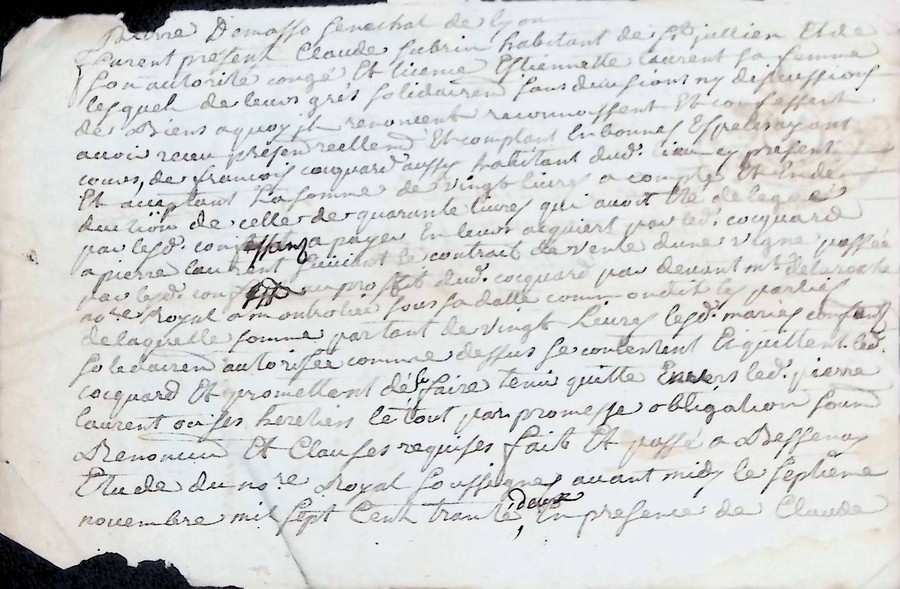 Pierre Domasso Senechal de Lyon
furent présent Claude Subrin habitant de St jullien Et de
son autorité congé Et licence Estiennette laurent sa femme
lesquel de leurs grés solidairem sans division ny discussions
de Biens a quoy jls renoncent reconnoissent Et confessent
avoir receu présen reellem Et comptant En bonnes Espesses ayant
cours, de francois cocquard aussy habitant dud. lieu cy présent
Et acceptant La somme de vingt livres a compte Et En de
duction de celle de quarante livres qui avoit Eté deleguéé
par lesd. conf a payer En leurs acquiert par led. cocquard
a pierre laurent suivant le contrait de vente dune vigne passéé
par lesd. conf au proffit dud. cocquard par devant Me delaroche
nore Royal a montrotier sous sa datte comm ont dit les parties
de laquelle somme partant de vingt livres lesd. mariés confess
solidairem autorisée comme dessus se contentent Et quittent led.
cocquard Et promettent de le faire tenir quitte Envers led. pierre
laurent ou ses heretiers le tout par promesse obligation soum
Renoncem Et Clauses requises fait Et passé a Bessenay
Etude du nore Royal soussignes avant midy le septième
novembre mil sept Cent trante deux, En presence de Claude